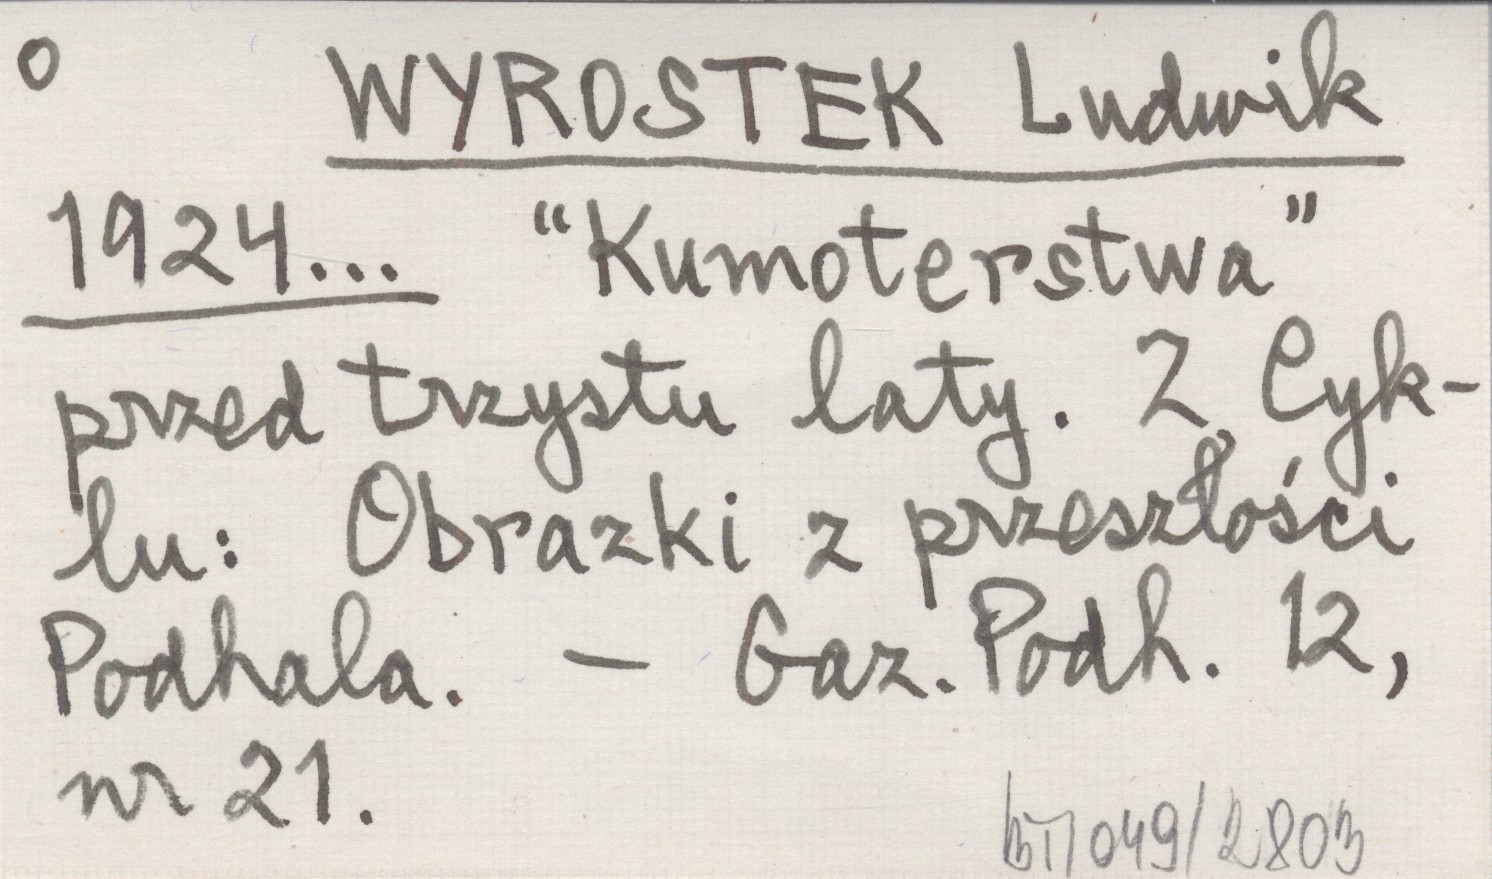 o WYROSTEK Ludwik
1924... “Kumoterstwa”
przed trzystu laty. Z Cyk-
lu: Obrazki z przeszłości
Podhala. — Gaz. Podh. 12,
nr 21.
049/2803